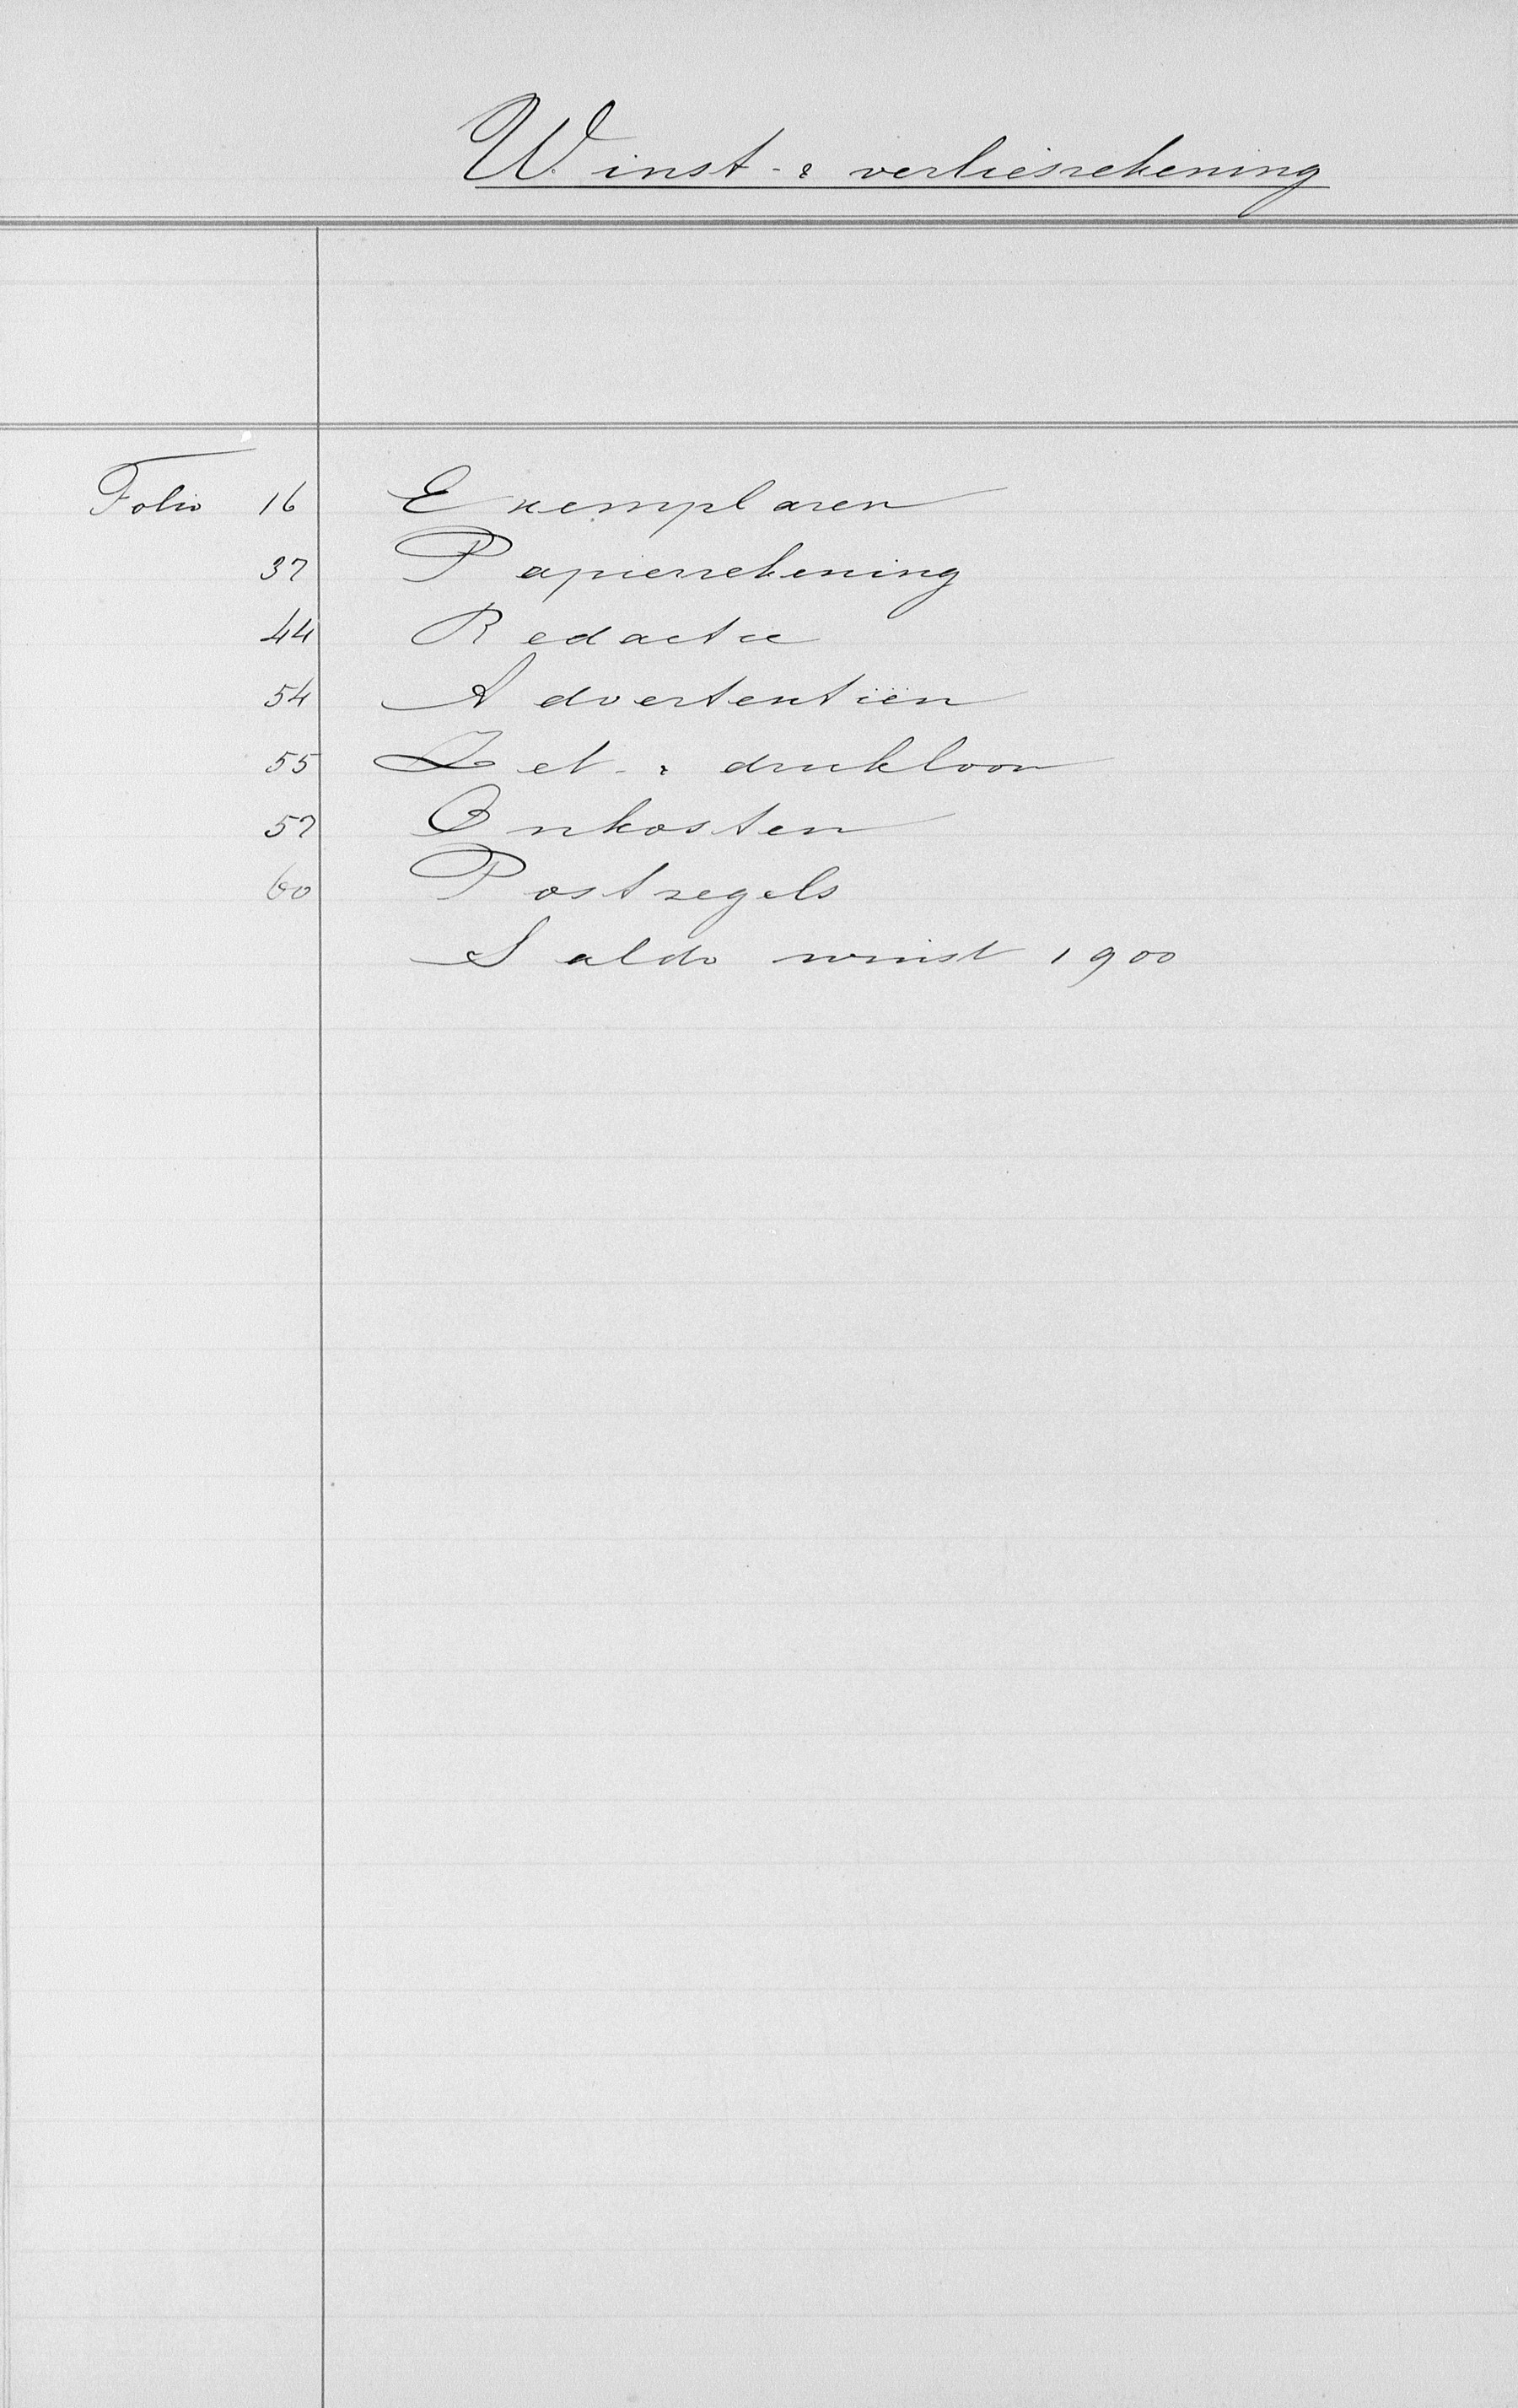 Winst- & verliesrekening
Folio 16 Exemplaren
37 Papierrekening
44 Redactie
54 Advertentiën
55 Zet- & drukloon
57 Onkosten
60 Postzegels
Saldo winst 1900